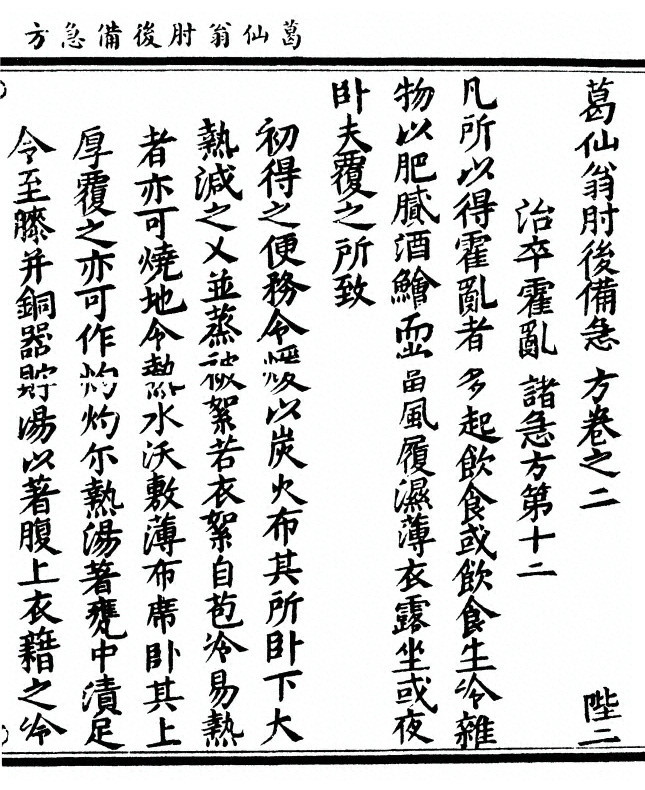 葛仙翁肘後備急方
葛仙翁肘後備急方卷之二 陛二
治卒霍亂諸急方第十二
凡所以得霍亂者多起飲食或飲食生冷雜
物以肥膩酒鱠而當風履濕薄衣露坐或夜
卧夫覆之所致
初得之便務令煖以炭火布其所卧下大
熱減之又並蒸被絮若衣絮自苞冷易熱
者亦可燒地令熱水沃敷薄布席卧其上
厚覆之亦可作灼灼尓熱湯著甕中漬足
令至膝并銅器貯湯以著腹上衣藉之冷